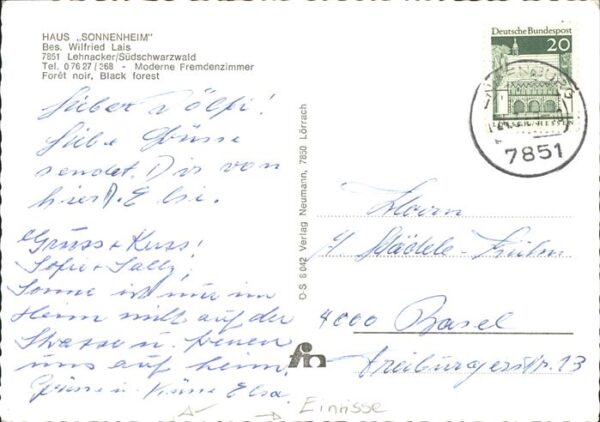 HAUS „SONNENHEIM"
Bes. Wilfried Lais
7851 Lehnacker/Südschwarzwald
Tel. 0 76 27 / 368 - Moderne Fremdenzimmer
Forêt noir, Black forest
Lieber Dölfi!
Liebe Grüsse
sendet Dir von
hier A. Elsi.
Gruss + Kuss!
Sofie + Sally,
Sonne ist nur im
Heim nicht auf der
Strasse u. freuen
uns auf heim.
Grüsse u. Küsse Elsa
O-S 6 042 Verlag Neumann, 7850 Lörrach
Deutsche Bundespost
20
LORSCH/HESSEN
7851
Herrn
Städele-
4000 Basel
Freiburgerstr. 13
fm
Einrisse